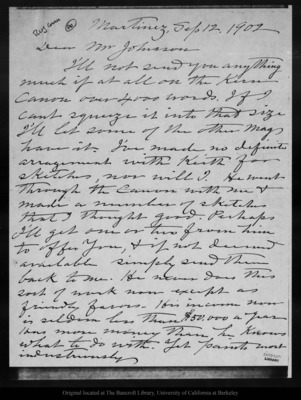 Martinez, Sep 12 1902
Dear Mr Johnson
I'll not send you anything
much if at all on the Kern
Canon over 4000 words. If I
cant squeeze it into that size
I'll let some of the other Mags
have it. I've made no definite
arragement with Keith for
sketches, nor will I. He went
through the Canon with me &
made a number of sketches
that I thought good. Perhaps
I'll get one or two from him
to offer you, & if not deemed
available simply send them
back to me. He never does this
sort of work now except as
friendly favors. His income now
is seldom less than $50,000 a year
has more money than he knows
what to do with. Yet paints most
industriously
BANCROFT
LIBRARY
Original located at The Bancroft Library, University of California at Berkeley